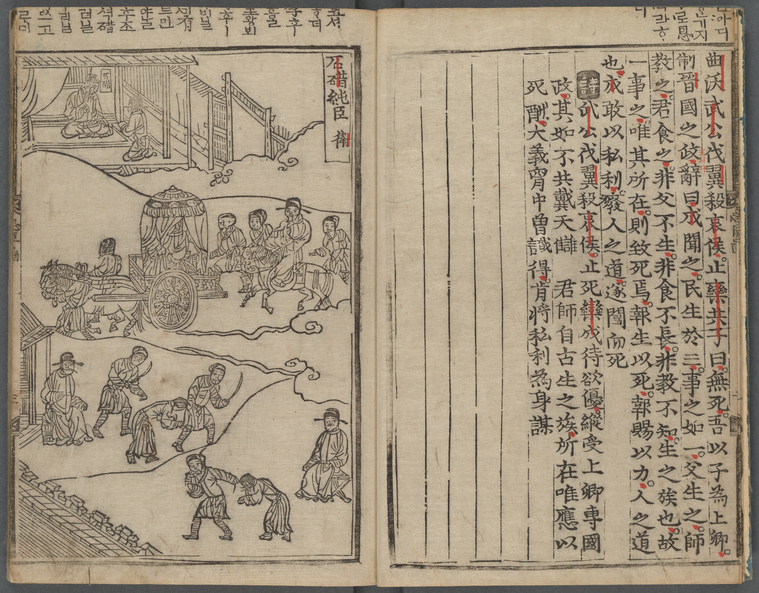 曲沃武公伐翼殺哀侯。止欒共子曰。無死。吾以子為上卿。
制晉國之政。辭曰。成聞之。民生於三。事之如一。父生之。師
教之。君食之。非父不生。非食不長。非教不知。生之族也。故
一事之。唯其所在。則致死焉。報生以死。報賜以力。人之道
也。成敢以私利。廢人之道。遂鬪而死
詩 武公伐翼殺哀侯。止死欒成待欲優。縱受上卿專國
政。其如不共戴天讎 君師自古生之族。所在唯應以
死酬。大義胷中曾講得。肯將私利為身謀
石碏純臣 衛